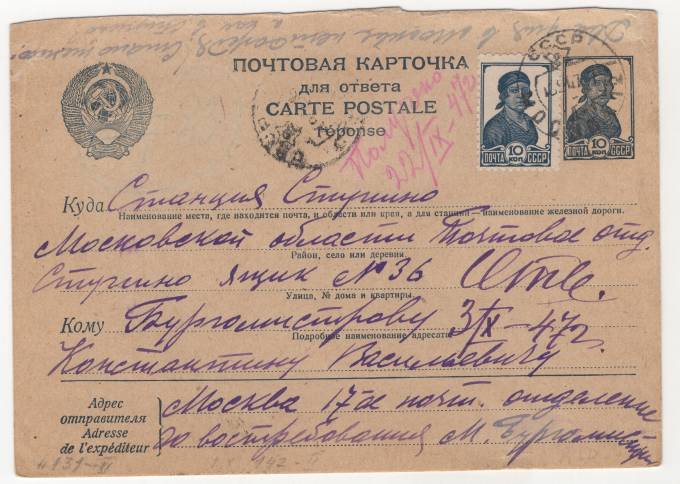 ПОЧТОВАЯ КАРТОЧКА
для ответа
CARTE POSTALE
réponse
Получено
22/IX-47г
ПОЧТА 10 КОП СССР
ПОЧТА 10 КОП СССР
Куда Станция Ступино
Наименование места, где находится почта, и области или края, а для станции — наименование железной дороги.
Московской области Почтовое отд.
Район, село или деревня.
Ступино ящик №36
Улица, № дома и квартиры.
Кому Бургомистрову 3/IX-47г.
Подробное наименование адресата
Константину Васильевичу
Адрес отправителя
Adresse de l'expéditeur
Москва 17-ое почт. отделение
до востребования М. Бургомистров